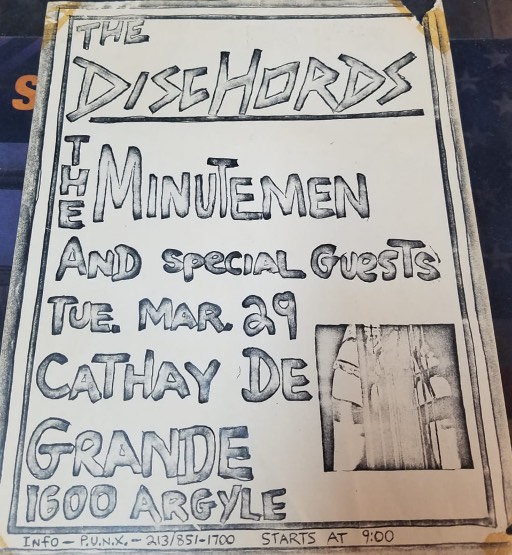 THE
DISCHORDS
THE MINUTEMEN
AND SPECIAL GUESTS
TUE. MAR. 29
CATHAY DE
GRANDE
1600 ARGYLE
INFO - P.U.N.X. - 213/851-1700 STARTS AT 9:00
S